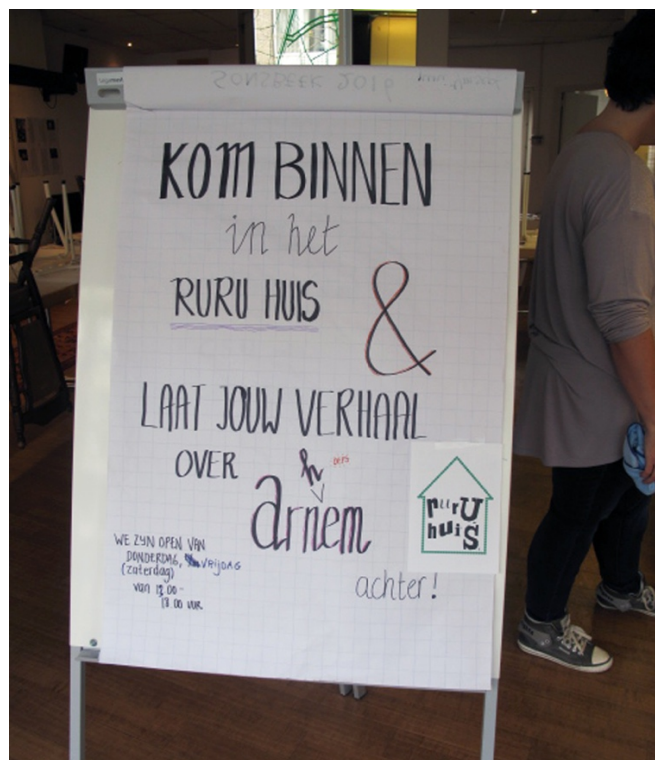 SONSBEEK 2016
KOM BINNEN
in het
RURU HUIS &
LAAT JOUW VERHAAL
OVER
h oeps
arnem
achter!
WE ZIJN OPEN VAN
DONDERDAG, VRIJDAG
(zaterdag)
van 12.00 -
17.00 UUR
rurU
huiS